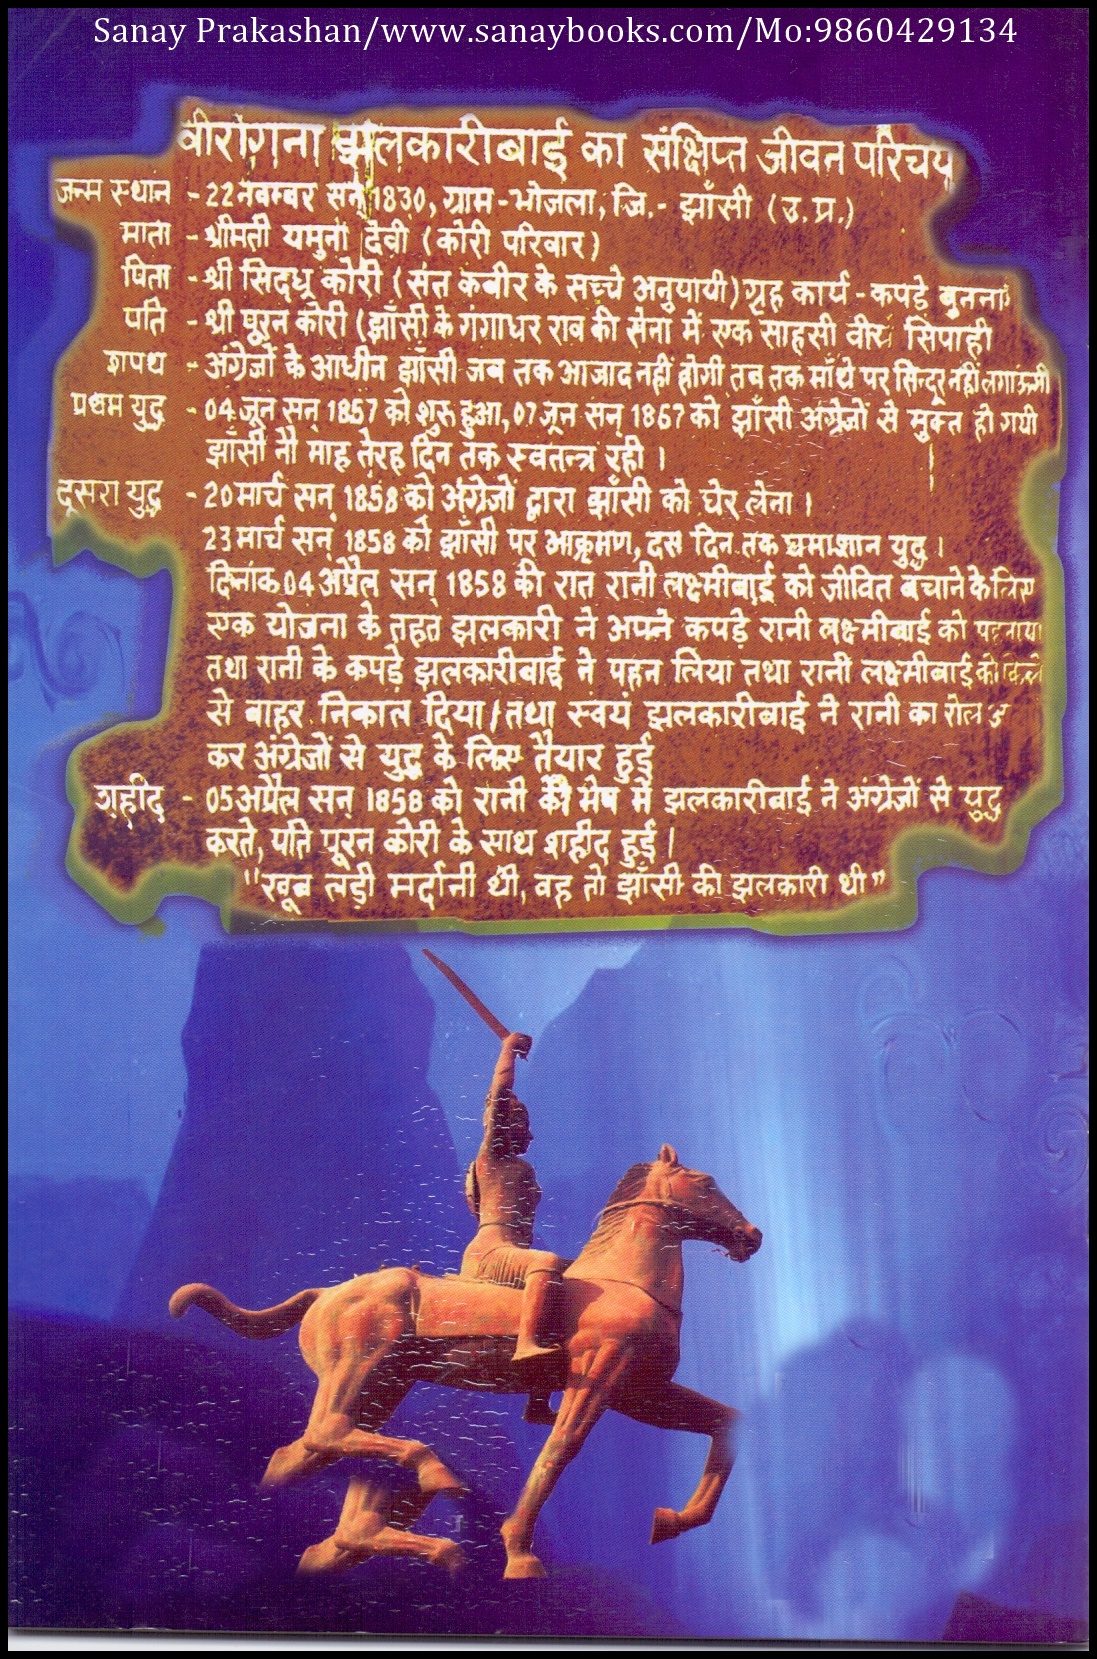 Sanay Prakashan/www.sanaybooks.com/Mo:9860429134
वीरांगना झलकारीबाई का संक्षिप्त जीवन परिचय
जन्म स्थान - 22 नवम्बर सन् 1830, ग्राम - भोजला, जि.- झाँसी (उ.प्र.)
माता - श्रीमती यमुना देवी (कोरी परिवार)
पिता - श्री सिद्धू कोरी (संत कबीर के सच्चे अनुयायी) गृह कार्य - कपड़े बुनना
पति - श्री पूरन कोरी (झाँसी के गंगाधर राव की सेना में एक साहसी वीर सिपाही
शपथ - अंग्रेजों के आधीन झाँसी जब तक आजाद नहीं होगी तब तक माँथे पर सिन्दूर नहीं लगाऊगी
प्रथम युद्ध - 04 जून सन् 1857 को शुरु हुआ, 07 जून सन् 1857 को झाँसी अंग्रेजों से मुक्त हो गयी
झाँसी नौ माह तेरह दिन तक स्वतन्त्र रही।
दूसरा युद्ध - 20 मार्च सन् 1858 को अंग्रेजों द्वारा झाँसी को घेर लेना।
23 मार्च सन् 1858 को झाँसी पर आक्रमण, दस दिन तक घमाशान युद्ध।
दिनांक 04 अप्रैल सन् 1858 की रात रानी लक्ष्मीबाई को जीवित बचाने के लिए
एक योजना के तहत झलकारी ने अपने कपड़े रानी लक्ष्मीबाई को पहनाया
तथा रानी के कपड़े झलकारीबाई ने पहन लिया तथा रानी लक्ष्मीबाई को किले
से बाहर निकाल दिया/तथा स्वयं झलकारीबाई ने रानी का रोल
कर अंग्रेजों से युद्ध के लिए तैयार हुई
शहीद - 05 अप्रैल सन् 1858 को रानी के भेष में झलकारीबाई ने अंग्रेजों से युद्ध
करते, पति पूरन कोरी के साथ शहीद हुई।
"खूब लड़ी मर्दानी थी, वह तो झाँसी की झलकारी थी"